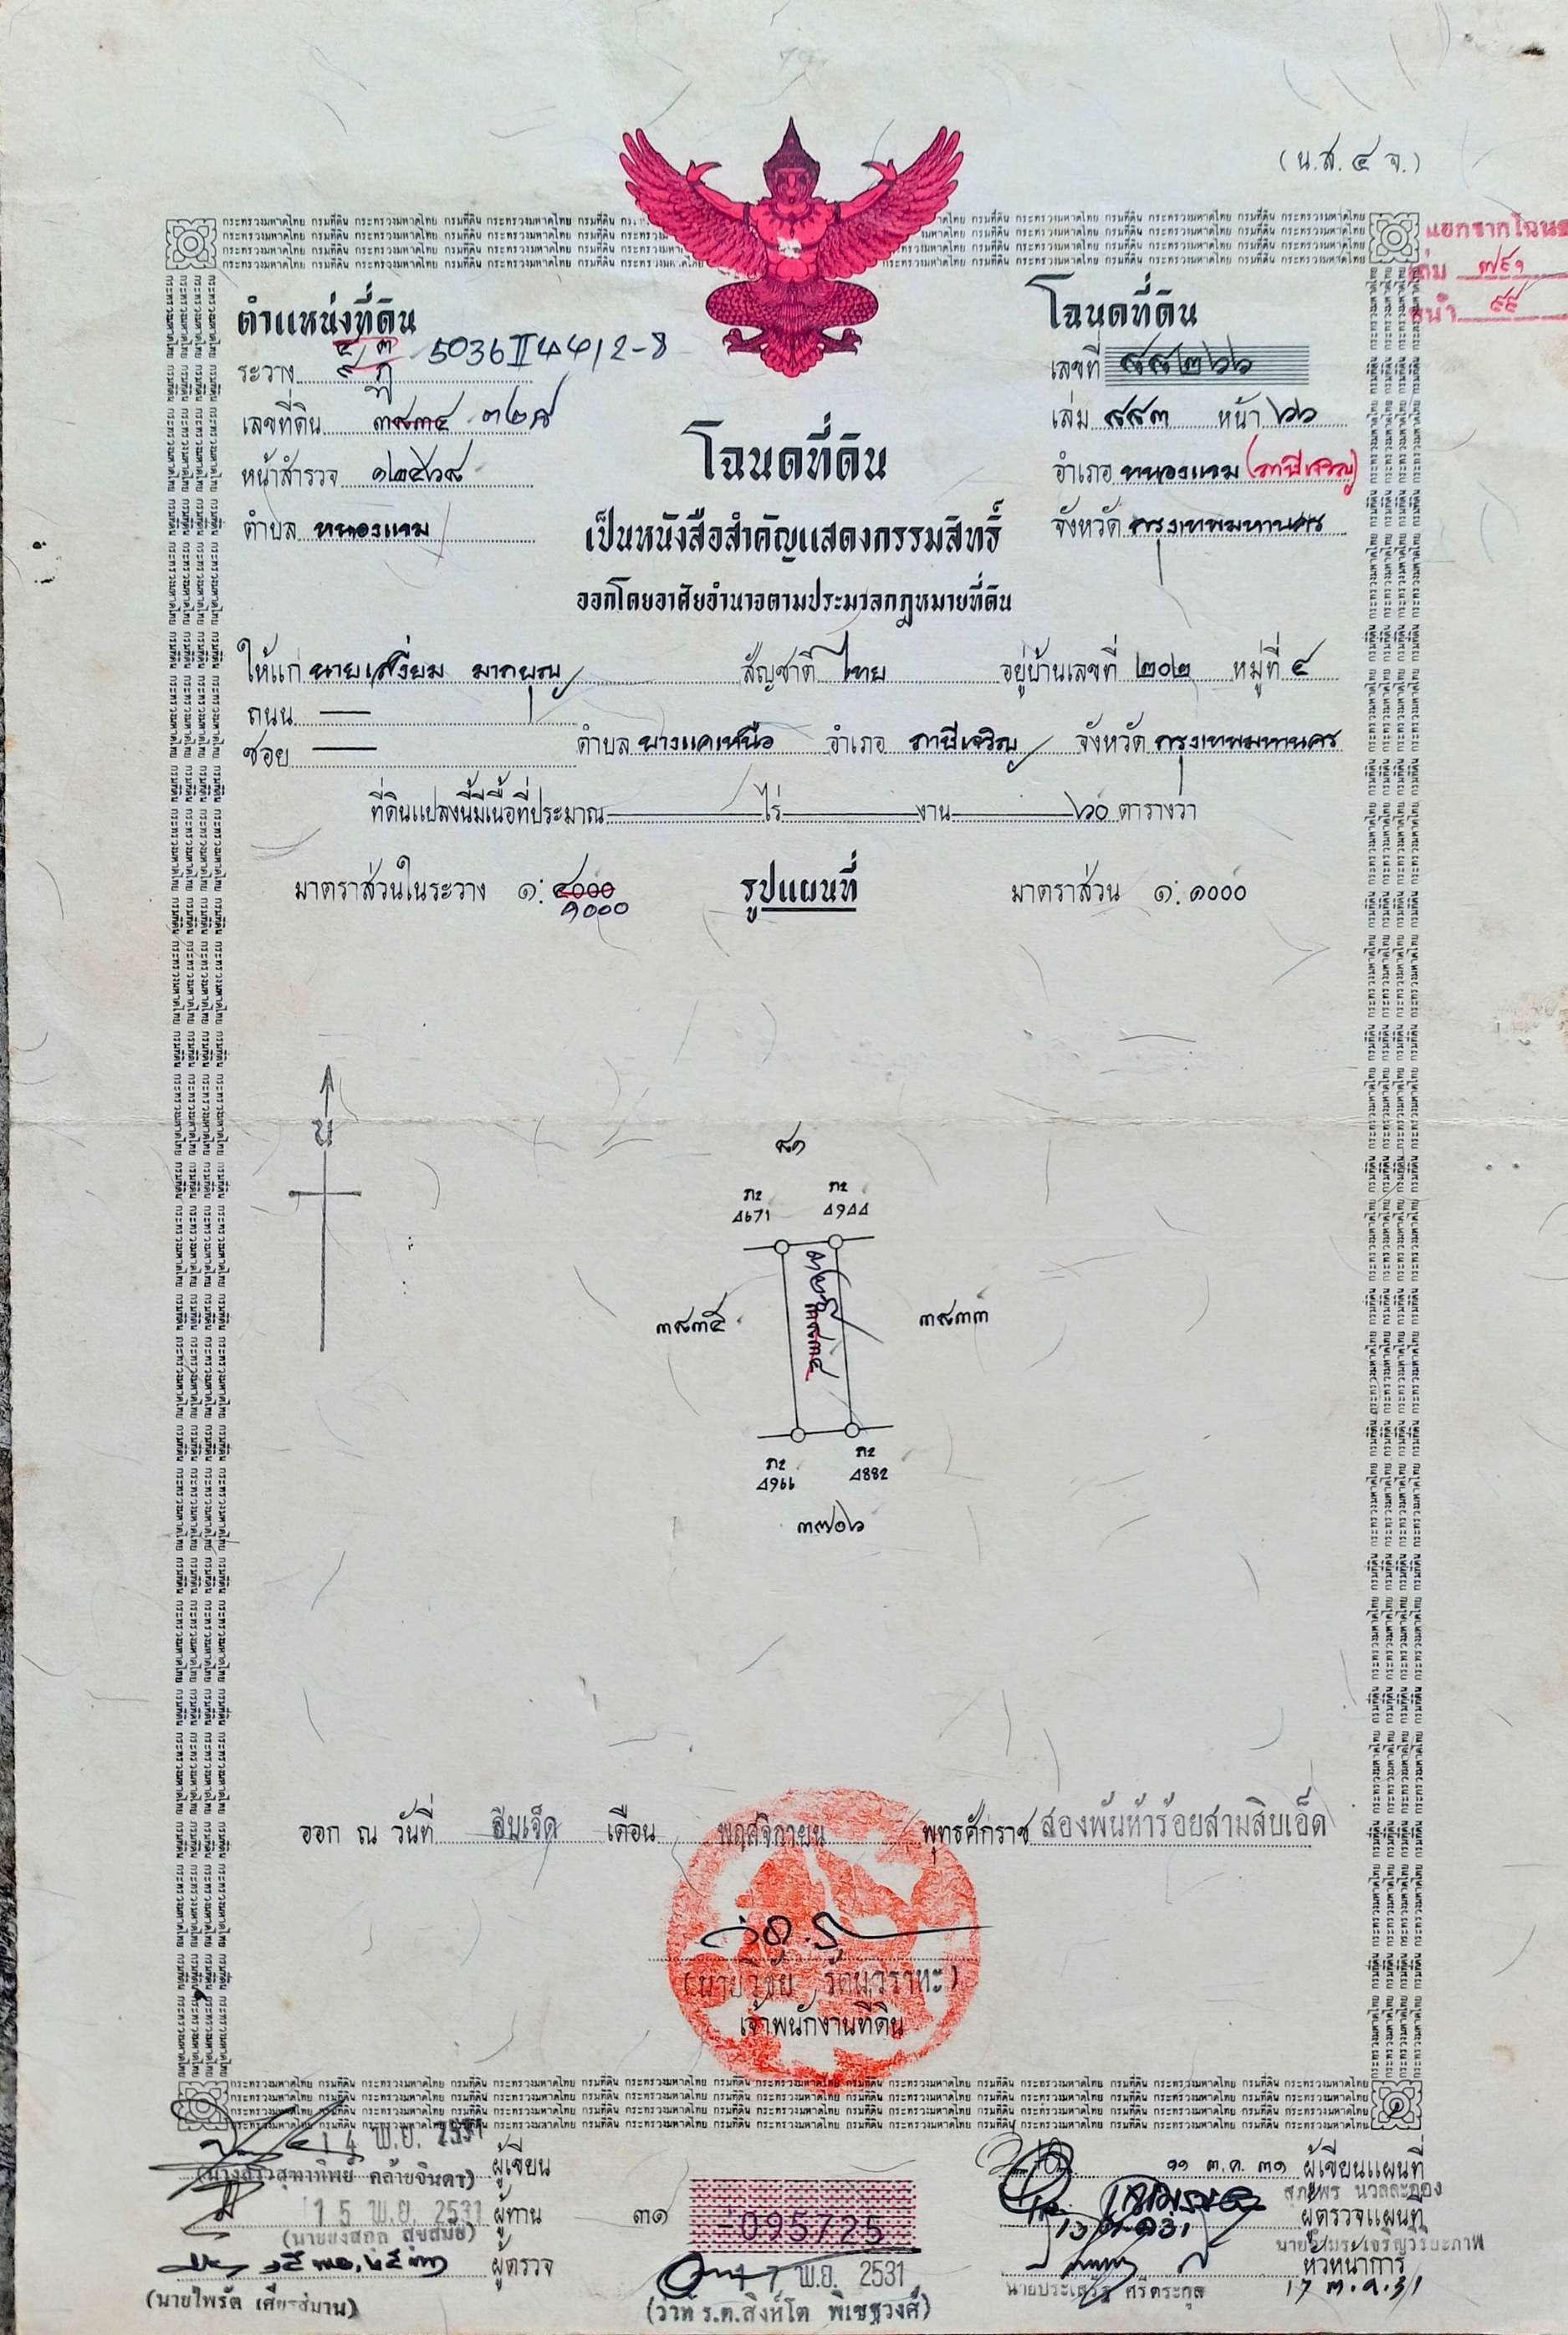 (น.ส. ๔ จ.)
แยกจากโฉนด
เล่ม ๗๙๑
หน้า ๙๙
ตำแหน่งที่ดิน
ระวาง ๕ ๓ ๙ ฎ 5036 II 4412-8
เลขที่ดิน ๓๙๓๔ ๓๒๘
หน้าสำรวจ ๑๒๕๖๙
ตำบล หนองแขม
โฉนดที่ดิน
เลขที่ ๙๙๒๖๖
เล่ม ๙๙๓ หน้า ๖๖
อำเภอ หนองแขม (ภาษีเจริญ)
จังหวัด กรุงเทพมหานคร
โฉนดที่ดิน
เป็นหนังสือสำคัญแสดงกรรมสิทธิ์
ออกโดยอาศัยอำนาจตามประมวลกฎหมายที่ดิน
ให้แก่ นายเสงี่ยม มากบุญ สัญชาติ ไทย อยู่บ้านเลขที่ ๒๐๒ หมู่ที่ ๔
ถนน —
ซอย — ตำบล บางแคเหนือ อำเภอ ภาษีเจริญ จังหวัด กรุงเทพมหานคร
ที่ดินแปลงนี้มีเนื้อที่ประมาณ — ไร่ — งาน — ๖๐ ตารางวา
มาตราส่วนในระวาง ๑: ๔๐๐๐ ๑๐๐๐ รูปแผนที่ มาตราส่วน ๑: ๑๐๐๐
น
๙๑
ภ2 ภ2
4671 4944
๓๙๓๕ ๓๒๘ ๓๙๓๔ ๓๙๓๓
ภ2 ภ2
4966 4882
๓๗๐๖
ออก ณ วันที่ สิบเจ็ด เดือน พฤศจิกายน พุทธศักราช สองพันห้าร้อยสามสิบเอ็ด
(นายวิชัย รัตนวราหะ)
เจ้าพนักงานที่ดิน
14 พ.ย. 2531
(นางสาวสุทาทิพย์ คล้ายจินดา) ผู้เขียน
15 พ.ย. 2531 ผู้ทาน
(นายยงสกุล สุขสมัย)
๑๕ พย. ๒๕๓๑ ผู้ตรวจ
(นายไพรัต เศียรสมาน)
๓๑ 095725
17 พ.ย. 2531
(ว่าที่ ร.ต.สิงห์โต พิเชฐวงศ์)
๑๑ ต.ค. ๓๑ ผู้เขียนแผนที่
สุภาพร นวลละออง
ผู้ตรวจแผนที่
หัวหน้าการ
นายประเสริฐ ศรีตระกูล 17 ต.ค. 31